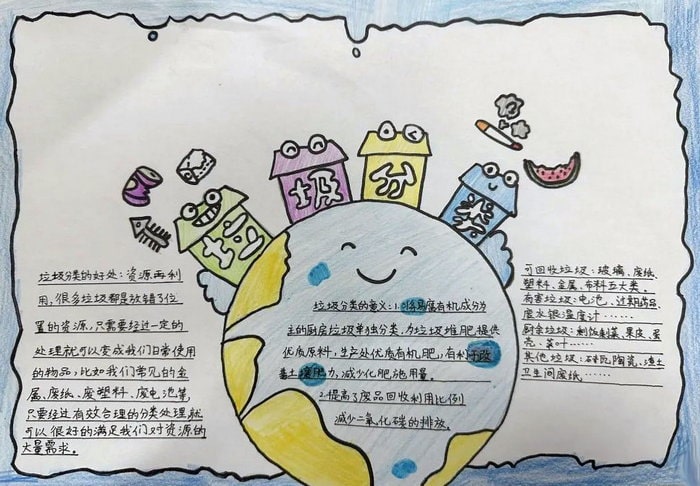 垃圾分类
垃圾分类的好处：资源再利
用，很多垃圾都是放错了位
置的资源，只需要经过一定的
处理就可以变成我们日常使用
的物品，比如我们常见的金
属、废纸、废塑料、废电池等，
只要经过有效合理的分类处理，就
可以很好的满足我们对资源的
大量需求。
垃圾分类的意义：1.将易腐有机成分为
主的厨房垃圾单独分类，为垃圾堆肥提供
优质原料，生产处优质有机肥，有利于改
善土壤肥力，减少化肥施用量。
2.提高了废品回收利用比例
减少二氧化碳的排放。
可回收垃圾：玻璃、废纸、
塑料、金属、布料五大类。
有害垃圾：电池、过期药品、
废水银温度计……
厨余垃圾：剩饭剩菜、果皮、蛋
壳、茶叶……
其他垃圾：砖瓦、陶瓷、渣土
卫生间废纸……